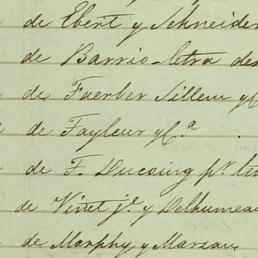 de Ebert y Schneider
de Barrio - letra de
de Faerber Sillem y C
de Tayleur y C.ª
de F. Ducoing pr.
de Vinet j.e y Delhumeau
de Morphy y Marzan